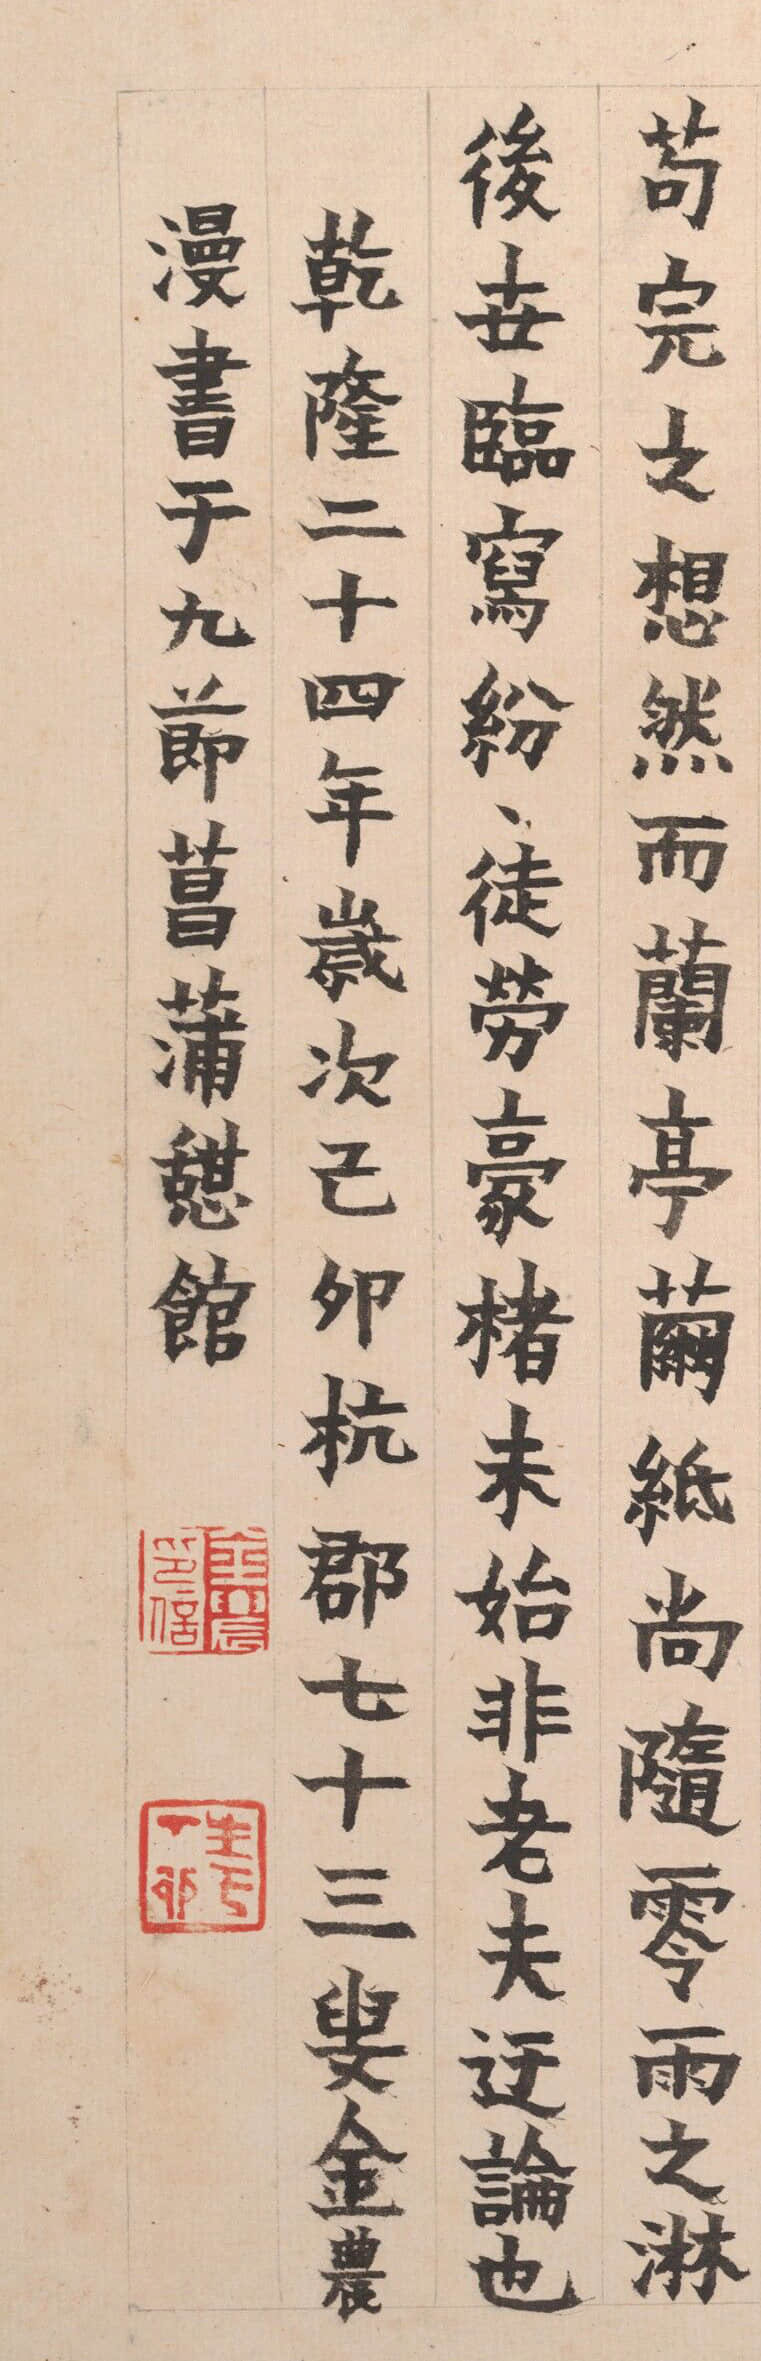 苟完之想然而蘭亭繭紙尚隨零雨之淋
後世臨寫紛〻徒勞豪楮未始非老夫迂論也
乾隆二十四年歲次己卯杭郡七十三叟金農
漫書于九節菖蒲憩館
金農印信
生於丁卯